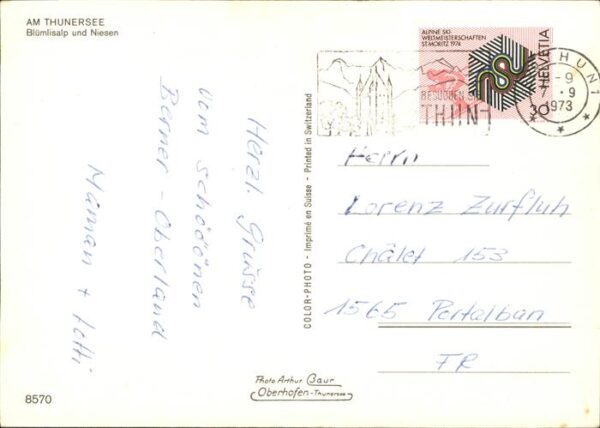 AM THUNERSEE
Blümlisalp und Niesen
Herzl. Grüsse
vom schööönen
Berner-Oberland
Maman +
8570
COLOR-PHOTO - Imprimé en Suisse - Printed in Switzerland
Photo Arthur Baur
Oberhofen-Thunersee
ALPINE SKI-
WELTMEISTERSCHAFTEN
ST. MORITZ 1974
HELVETIA
30
BESUCHEN SIE
THUN
THUN 1
-9
9
1973
Herrn
Lorenz Zurfluh
Châlet 153
1565 Portalban
FR